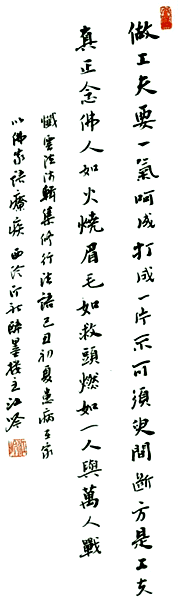 做工夫要一氣呵成打成一片不可須臾間斷方是工夫
真正念佛人如火燒眉毛如救頭燃如一人與萬人戰
懺雲法師輯集修行法語己丑初夏患病在家
以佛家語療疾西泠印社醉墨樓主江吟